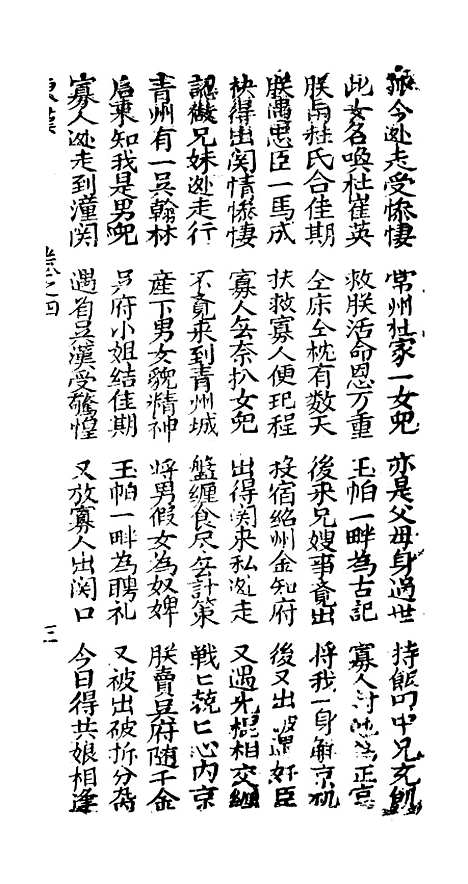 孤今逃走受慘悽 常州杜家一女兒 亦是父母身過世 持飯叩中兄充飢
此女名喚杜崔英 救朕活命恩万重 玉帕一畔為古記 寡人討他為正宮
朕与桂氏合佳期 仝床仝枕有数天 後來兄嫂事竟出 将我一身解京
朕遇忠臣一馬成 扶救寡人便巳程 投宿紹州金知府 後又出 遇奸臣
快得出関情慘悽 寡人安奈扒女兒 出得関來私逃走 又遇光棍相交纏
認做兄妹逃走行 不竟來到青州城 盤纏食尽無計策 戦匕兢匕心内京
青州有一吳翰林 產下男女貌精神 将男假女為奴婢 朕賣吳府随千金
后來知我是男兒 吳府小姐結佳期 玉帕一畔為聘礼 又被出破拆分离
寡人逃走到潼関 遇着吳漢受驚惶 又放寡人出関口 今日得共娘相逢
東漢 卷之四 三